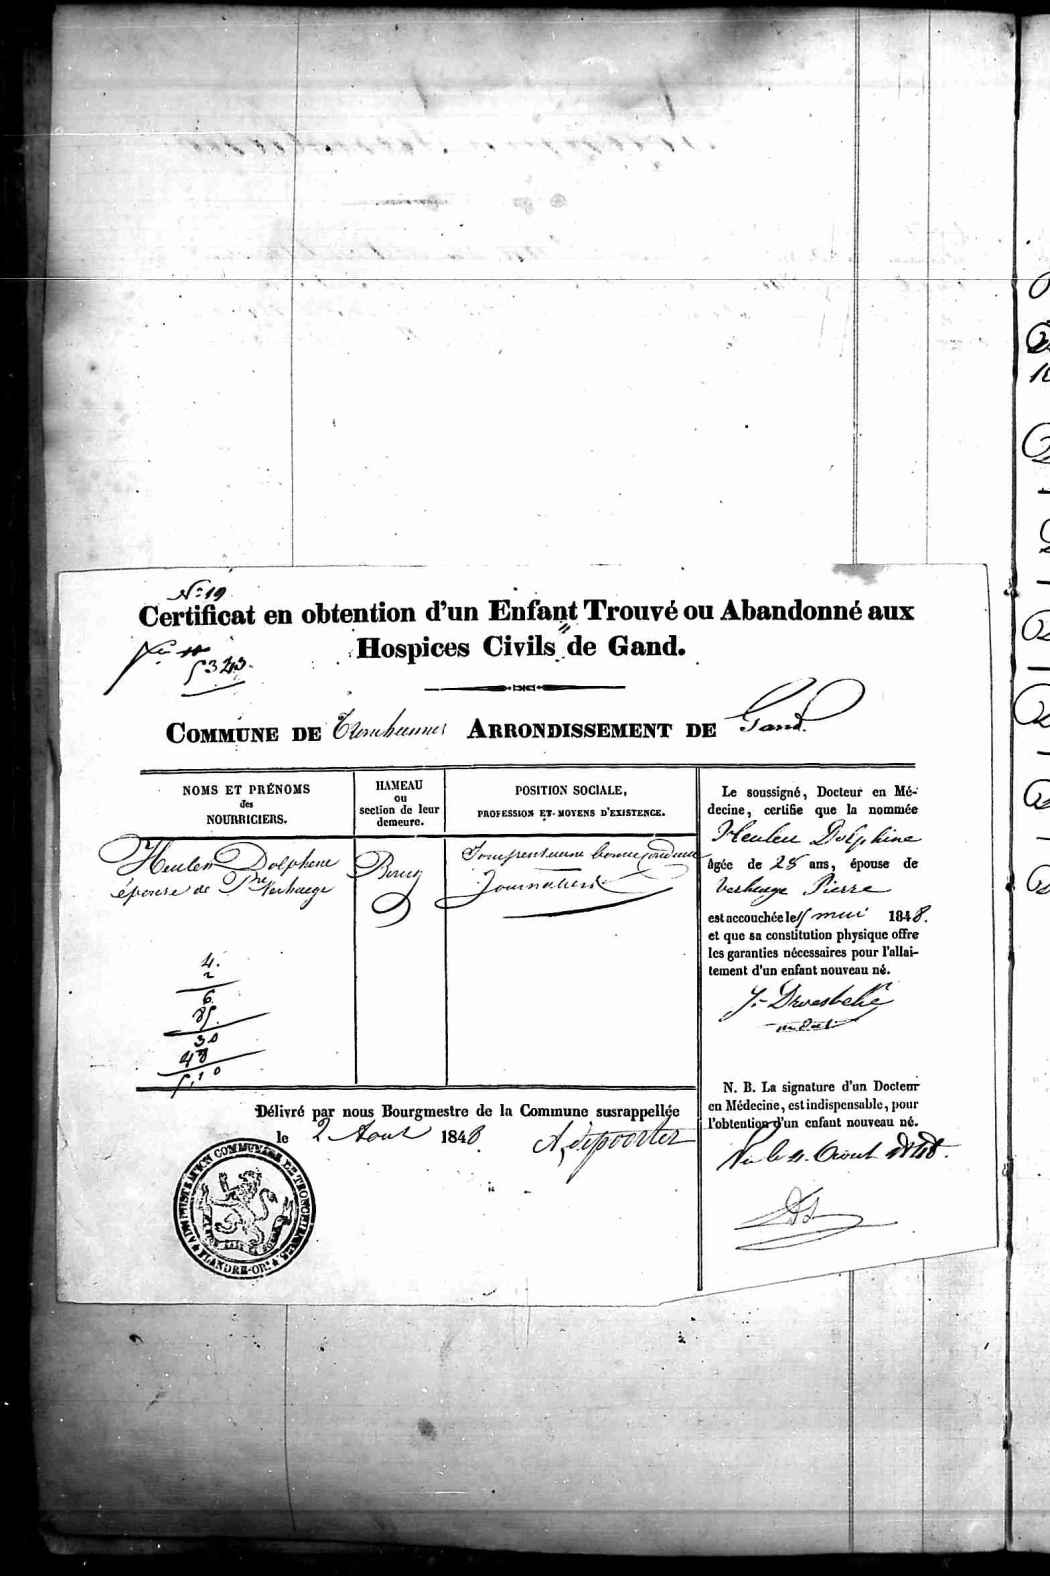 N: 19
Certificat en obtention d'un Enfant Trouvé ou Abandonné aux
Hospices Civils de Gand.
5343.
COMMUNE DE ARRONDISSEMENT DE Gand.
NOMS ET PRÉNOMS
des
NOURRICIERS.
HAMEAU
ou
section de leur
demeure.
POSITION SOCIALE,
PROFESSION ET MOYENS D'EXISTENCE.
Heulen Dolphine
épouse de Pre Verhaege
Bourg
bonne conduite
Journalière
4.
2
6
85
30
48
5,10
Le soussigné, Docteur en Mé-
decine, certifie que la nommée
Heulen Dolphine
âgée de 28 ans, épouse de
Verhaege Pierre
est accouchée le mai 1848.
et que sa constitution physique offre
les garanties nécessaires pour l'allai-
tement d'un enfant nouveau né.
N. B. La signature d'un Docteur
en Médecine, est indispensable, pour
l'obtention d'un enfant nouveau né.
Vu le 4 Aout 1848.
Délivré par nous Bourgmestre de la Commune susrappellée
le 2 Aout 1848 A, depoorter
ADMINISTRATION COMMUNALE DE TRONCHIENNES
FLANDRE-ORle